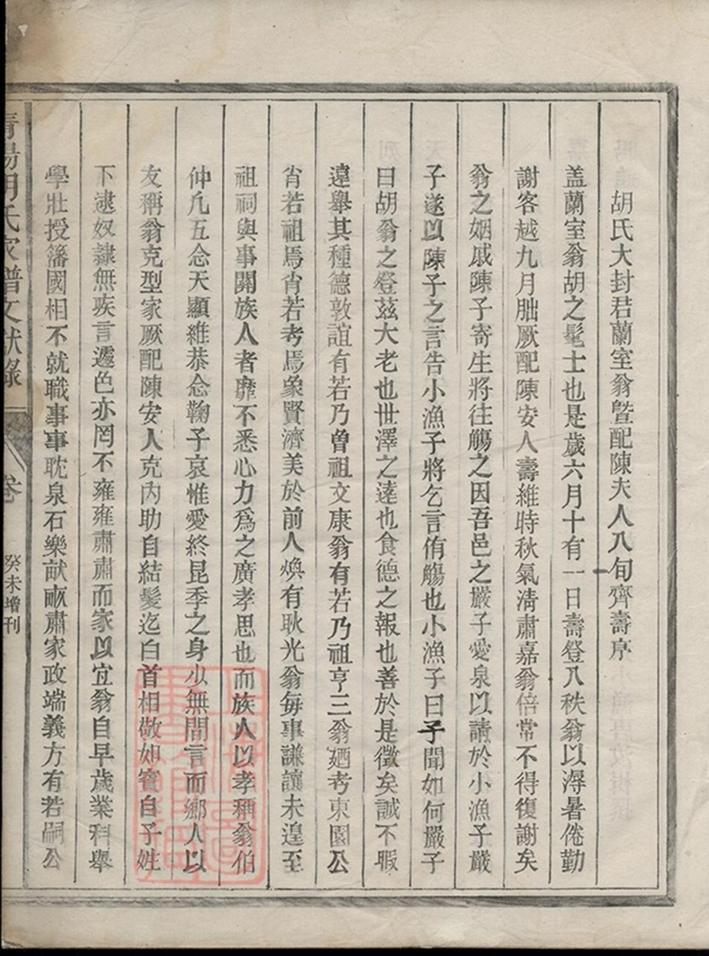 胡氏大封君蘭室翁曁配陳夫人八旬齊壽序
盖蘭室翁胡之髦士也是歲六月十有一日壽登八秩翁以溽暑倦勤
謝客越九月朏厥配陳安人壽維時秋氣清肅嘉翁倍常不得復謝矣
翁之姻戚陳子寄生將往觴之因吾邑之嚴子愛泉以請於小漁子嚴
子遂以陳子之言告小漁子將乞言侑觴也小漁子曰予聞如何嚴子
曰胡翁之登茲大老也世澤之逺也食德之報也善於是徵矣誠不暇
遠舉其種德敦誼有若乃曾祖文康翁有若乃祖亨三翁廼考東園公
肖若祖焉肖若考焉象賢濟美於前人煥有耿光翁每事謙讓未遑至
祖祠與事關族人者靡不悉心力爲之廣孝思也而族人以孝稱翁伯
仲凡五念天顯維恭念鞠子哀惟愛終昆季之身少無間言而鄉人以
友稱翁克型家厥配陳安人克内助自結髮迄白首相敬如賓自子姓
下逮奴隸無疾言遽色亦罔不雍雍肅肅而家以宜翁自早歲業科舉
學壯授藩國相不就職事事耽泉石樂畎畝肅家政端義方有若嗣公
青陽胡氏家譜文獻錄 卷 癸未增刊